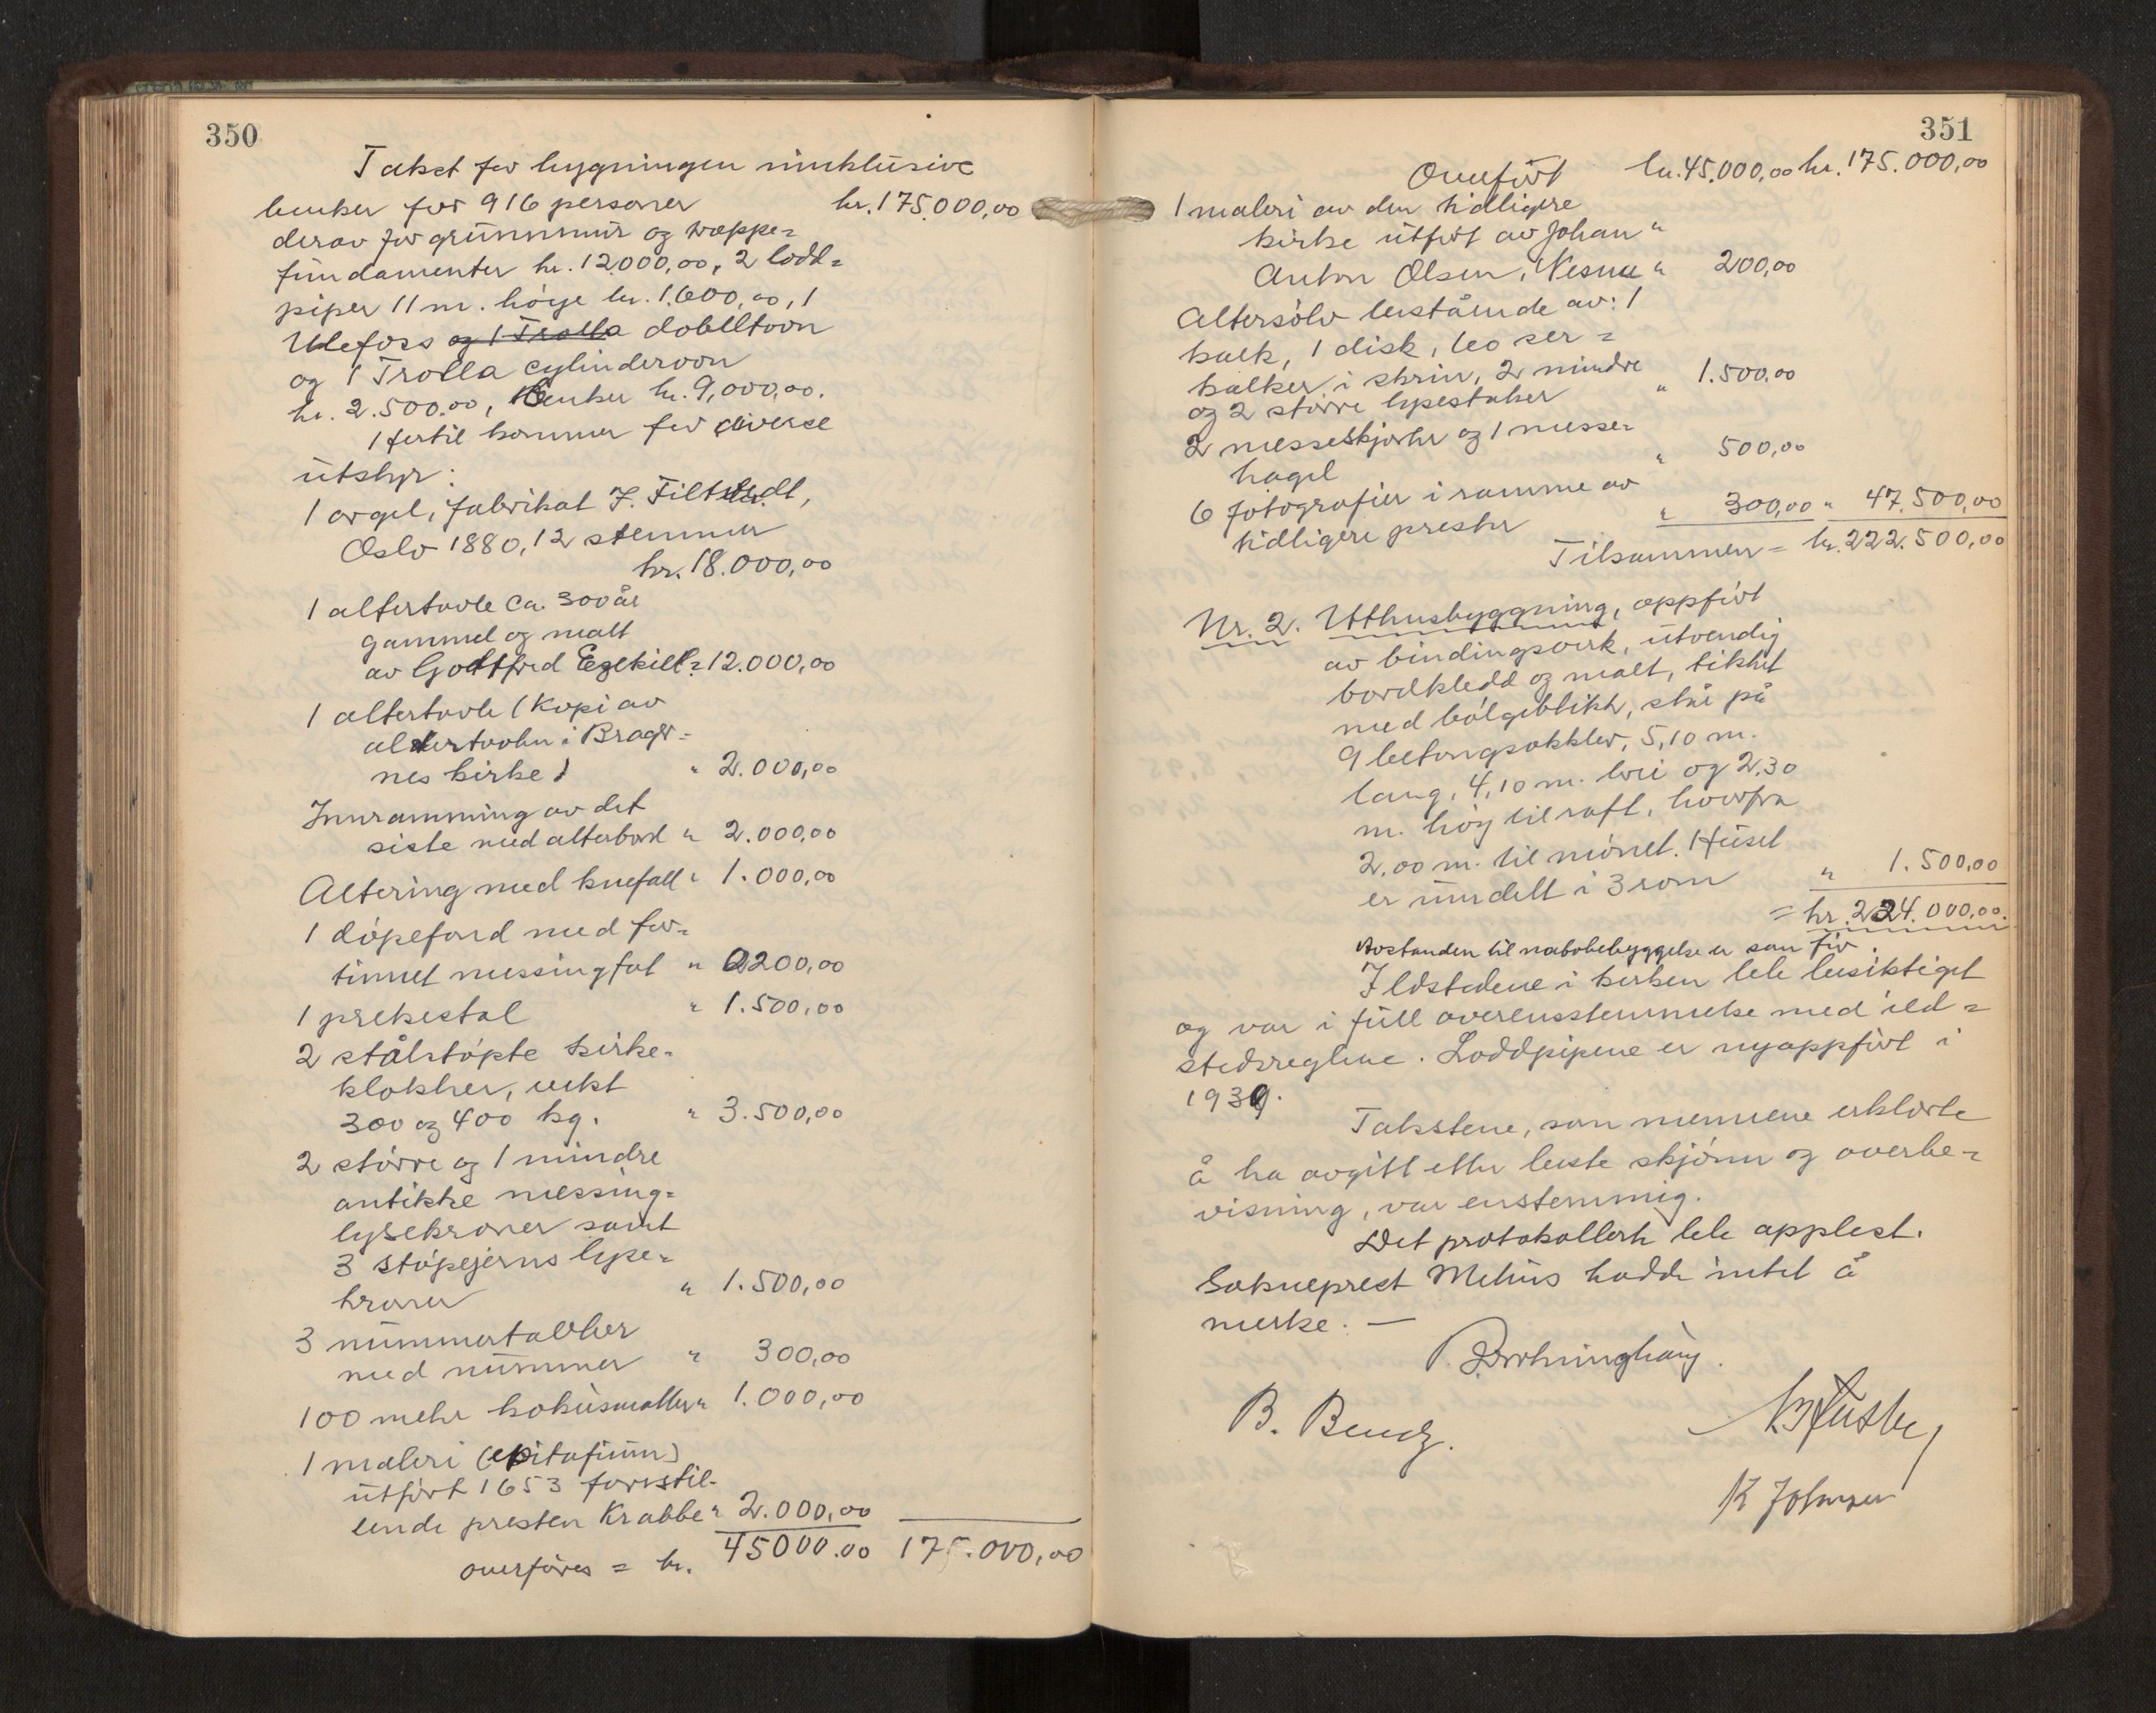 350
Takst for bygningen innklusive
benker for 916 personer kr. 175.000,00
derav for grunnmur og trappe=
fundamenter kr. 12.000,00, 2 lodd=
piper 11 m. høye kr. 1.600,00, 1
Ulefoss og 1 Trolla dobelltovn
og 1 Trolla cylinderovn
kr. 2.500.00, Benker kr. 9,000,00.
Hertil kommer for diverse
utstyr:
1 orgel, fabrikat J.
Oslo 1880, 12 stemmer
kr. 18.000,00
1 altertavle ca. 300 år
gammel og malt
av Gottfred Ezekiel = 12.000,00
1 altertavle (Kopi av
altertavlen i Brager=
nes kirke) " 2.000,00
Innramming av det
siste med alterbord " 2.000,00
Altering med knefall " 1.000,00
1 døpefond med for=
tinnet messingfat " 200,00
1 prekestol " 1.500,00
2 stålstøpte kirke=
klokker, vekt
300 og 400 kg. " 3.500,00
2 større og 1 mindre
antikke messing=
lysekroner samt
3 støpejerns lyse=
kroner " 1.500,00
3 nummertavler
med nummer " 300,00
100 meter kokusmatter " 1.000,00
1 maleri (epitafium)
utført 1653 forestil-
lende presten Krabbe " 2.000,00
overføres = kr. 45000.00 175.000,00
351
Overført kr. 45.000,00 kr. 175.000,00
1 maleri av den tidligere
kirke utført av Johan "
Anton Olsen, Nesna " 200,00
Altersølv bestående av: 1
kalk, 1 disk, 60 sær=
kalker i skrin, 2 mindre
og 2 større lysestaker " 1.500,00
2 messeskjorter og 1 messe=
hagel " 500,00
6 fotografier i ramme av
tidligere prester " 300,00 " 47.500,00
Tilsammen = kr. 222.500,00
Nr. 2. Uthusbyggning, oppført
av bindingsverk, utvendig
bordkledd og malt, tekket
med bølgeblikk, står på
9 betongsokkler, 5,10 m.
lang, 4,10 m. brei og 2,30
m. høy til raft, hvorfra
2,00 m. til mønet. Huset
er inndelt i 3 rom " 1.500,00
= kr. 224.000,00.
Avstanden til nabobebyggelse er som før.
Ildstedene i kirken ble besiktiget
og var i full overensstemmelse med ild=
stedsreglene. Loddpipene er nyoppført i
1939.
Takstene, som mennene erklærte
å ha avgitt etter beste skjønn og overbe=
visning, var enstemmig.
Det protokollerte ble opplest.
Sokneprest Mehus hadde intet å
merke. —
B. Bendz.
K Johnsen